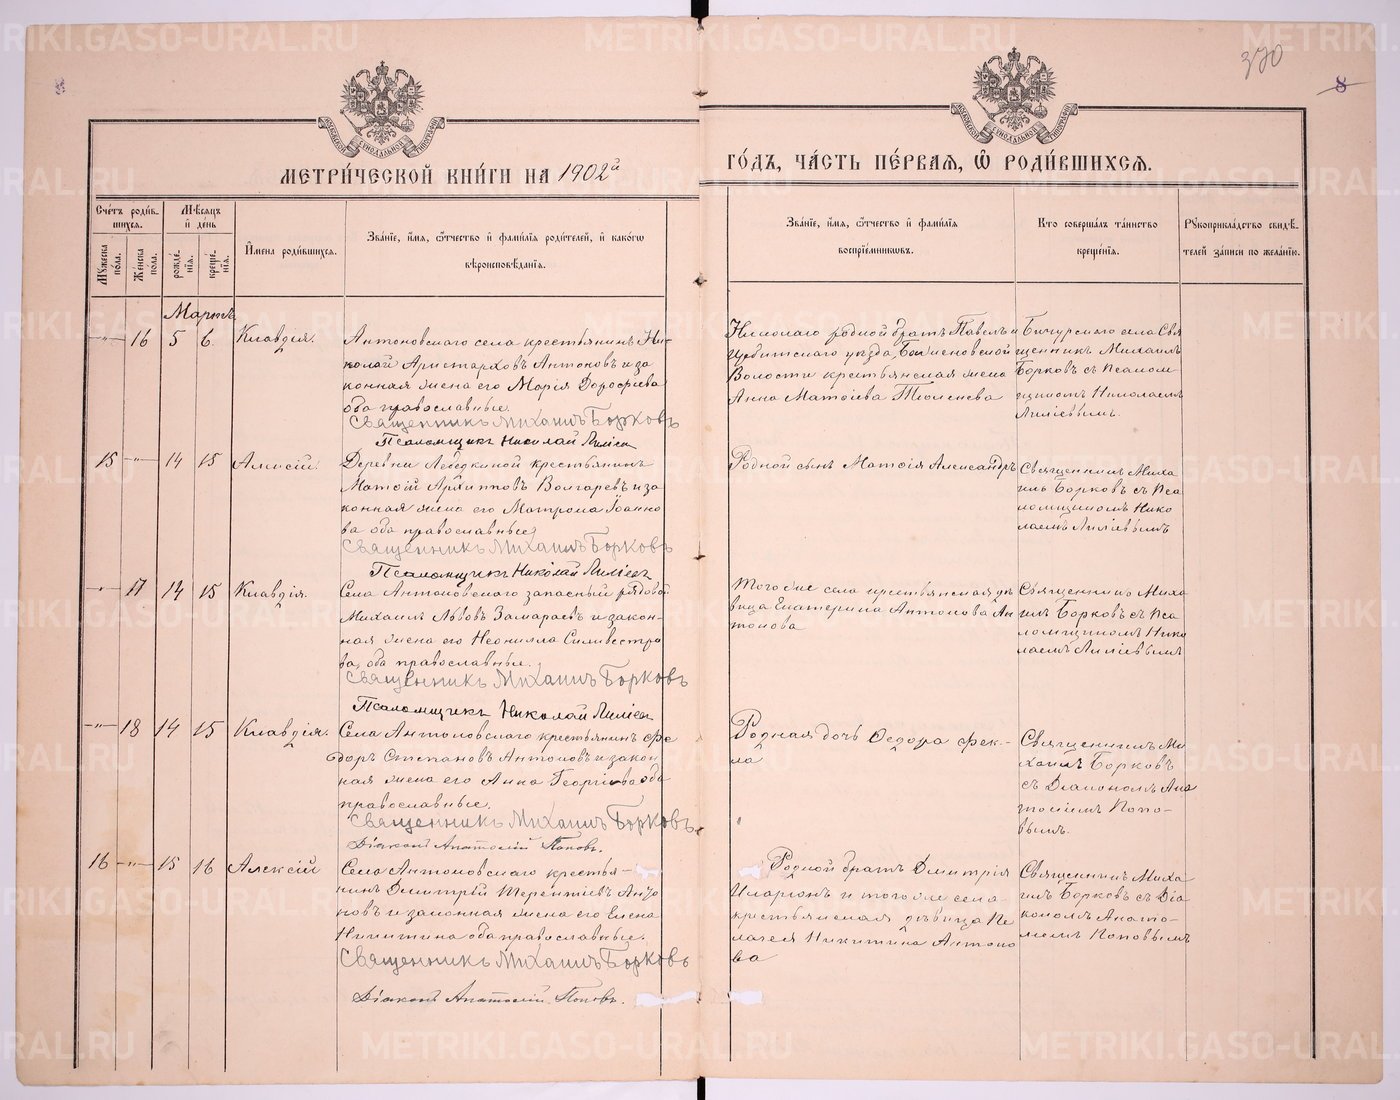 METRIKI.GASO-URAL.RU
370
8
МЕТРИ́ЧЕСКОЙ КНИ́ГИ НА 1902й
ГО́ДЪ, ЧА́СТЬ ПЕ́РВАЯ, Ѿ РОДИ́ВШИХСѦ.
Сче́тъ роди́вшихсѧ.
Му́жеска по́ла.
Же́нска по́ла.
Мѣ́сяцъ и҆ де́нь
рожде́нїѧ.
креще́нїѧ.
И҆мена роди́вшихсѧ.
Зва́нїе, и҆́мѧ, ѻ҆́тчество и҆ фами́лїѧ роди́телей, и҆ како́гѡ
вѣроисповѣ́данїѧ.
Зва́нїе, и҆́мѧ, ѻ҆́тчество и҆ фами́лїѧ
воспрїе́мниковъ.
Кто̀ соверша́лъ та́инство
креще́нїѧ.
Рꙋкоприкла́дство свидѣ́телей за́писи по жела́нїю.
Мартъ
-"- 16 5 6. Клавдія.
Антоновскаго села крестьянинъ Ни-
колай Аристарховъ Антоновъ и за
конная жена его Марія Дорофѣева
оба православные.
Священникъ Михаилъ Борковъ
Псаломщикъ Николай Лиліевъ
Николаго родной братъ Павелъ и
Ирбитскаго уѣзда,
Волости крестьянская жена
Анна Матѳіева Тюленева
Бичурскаго села Свя
щенникъ Михаилъ
Борковъ съ Псалом-
щикомъ Николаемъ
Лиліевымъ.
15 -"- 14 15 Алексій.
Деревни Лебедкиной крестьянинъ
Матѳій Архиповъ Волгаревъ и за
конная жена его Матрона Іоанно
ва оба православные
Священникъ Михаилъ Борковъ
Псаломщикъ Николай Лиліевъ
Родной сынъ Матѳія Александръ
Священникъ Миха
илъ Борковъ съ Пса
ломщикомъ Нико
лаемъ Лиліевымъ
-"- 17 14 15 Клавдія.
Села Антоновскаго запасный рядовой
Михаилъ Львовъ Замараевъ и закон-
ная жена его Неонилла Силвестро
ва, оба православные.
Священникъ Михаилъ Борковъ
Псаломщикъ Николай Лиліевъ
Того же села крестьянская дѣ
вица Екатерина Антонова Ан
тонова
Священникъ Миха
илъ Борковъ съ Пса
ломщикомъ Нико
лаемъ Лиліевымъ
-"- 18 14 15 Клавдія.
Села Антоновскаго крестьянинъ Фе
доръ Степановъ Антоновъ и закон
ная жена его Анна Георгіева оба
православные.
Священникъ Михаилъ Борковъ
Діаконъ Анатолій Поповъ.
Родная дочь Ѳедора Фек-
ла
Священникъ Ми
хаилъ Борковъ
съ Діакономъ Ана
толіемъ Попо-
вымъ.
16 -"- 15 16 Алексій
Села Антоновскаго крестья-
нинъ Димитрій Терентіевъ Анто
новъ и законная жена его Елена
Никитина оба православные.
Священникъ Михаилъ Борковъ
Діаконъ Анатолій Поповъ.
Родной братъ Димитрія
Иларіонъ и того же села
крестьянская дѣвица Пе
лагея Никитина Антоно
ва
Священникъ Миха
илъ Борковъ съ Діа
кономъ Анато-
ліемъ Поповымъ